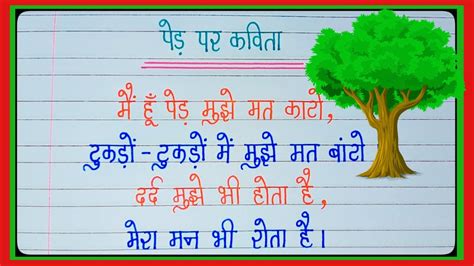 पेड़ पर कविता
मैं हूँ पेड़ मुझे मत काटो,
टुकड़ों-टुकड़ों में मुझे मत बांटो
दर्द मुझे भी होता है,
मेरा मन भी रोता है।